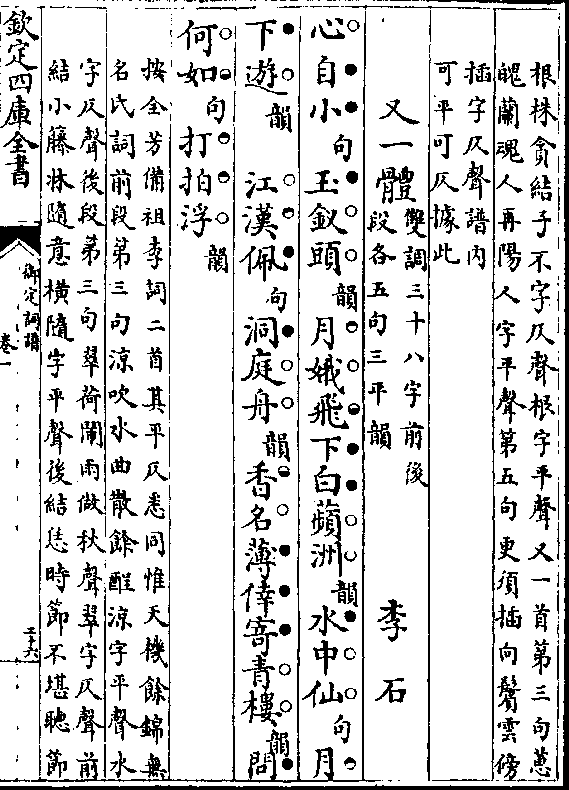 根株貪結子不字仄聲根字平聲又一首第三句蕙
䰟蘭魂人再陽人字平聲第五句更須插向鬢雲傍
插字仄聲譜内
可平可仄據此
又一體 雙調三十八字前後段各五句三平韻 李石
心自小句玉釵頭韻月娥飛下白蘋洲韻水中仙句月
下遊韻 江漢佩句洞庭舟韻香名薄倖寄青樓韻問
何如句打拍浮韻
按全芳備祖李詞二首其平仄悉同惟天機餘錦無
名氏詞前段第三句涼吹水曲散餘酲涼字平聲水
字仄聲後段第三句翠荷閙雨做秋聲翠字仄聲前
結小簾牀隨意横隨字平聲後結恁時節不堪聴節
欽定四庫全書
御定詞譜
卷一
三十六